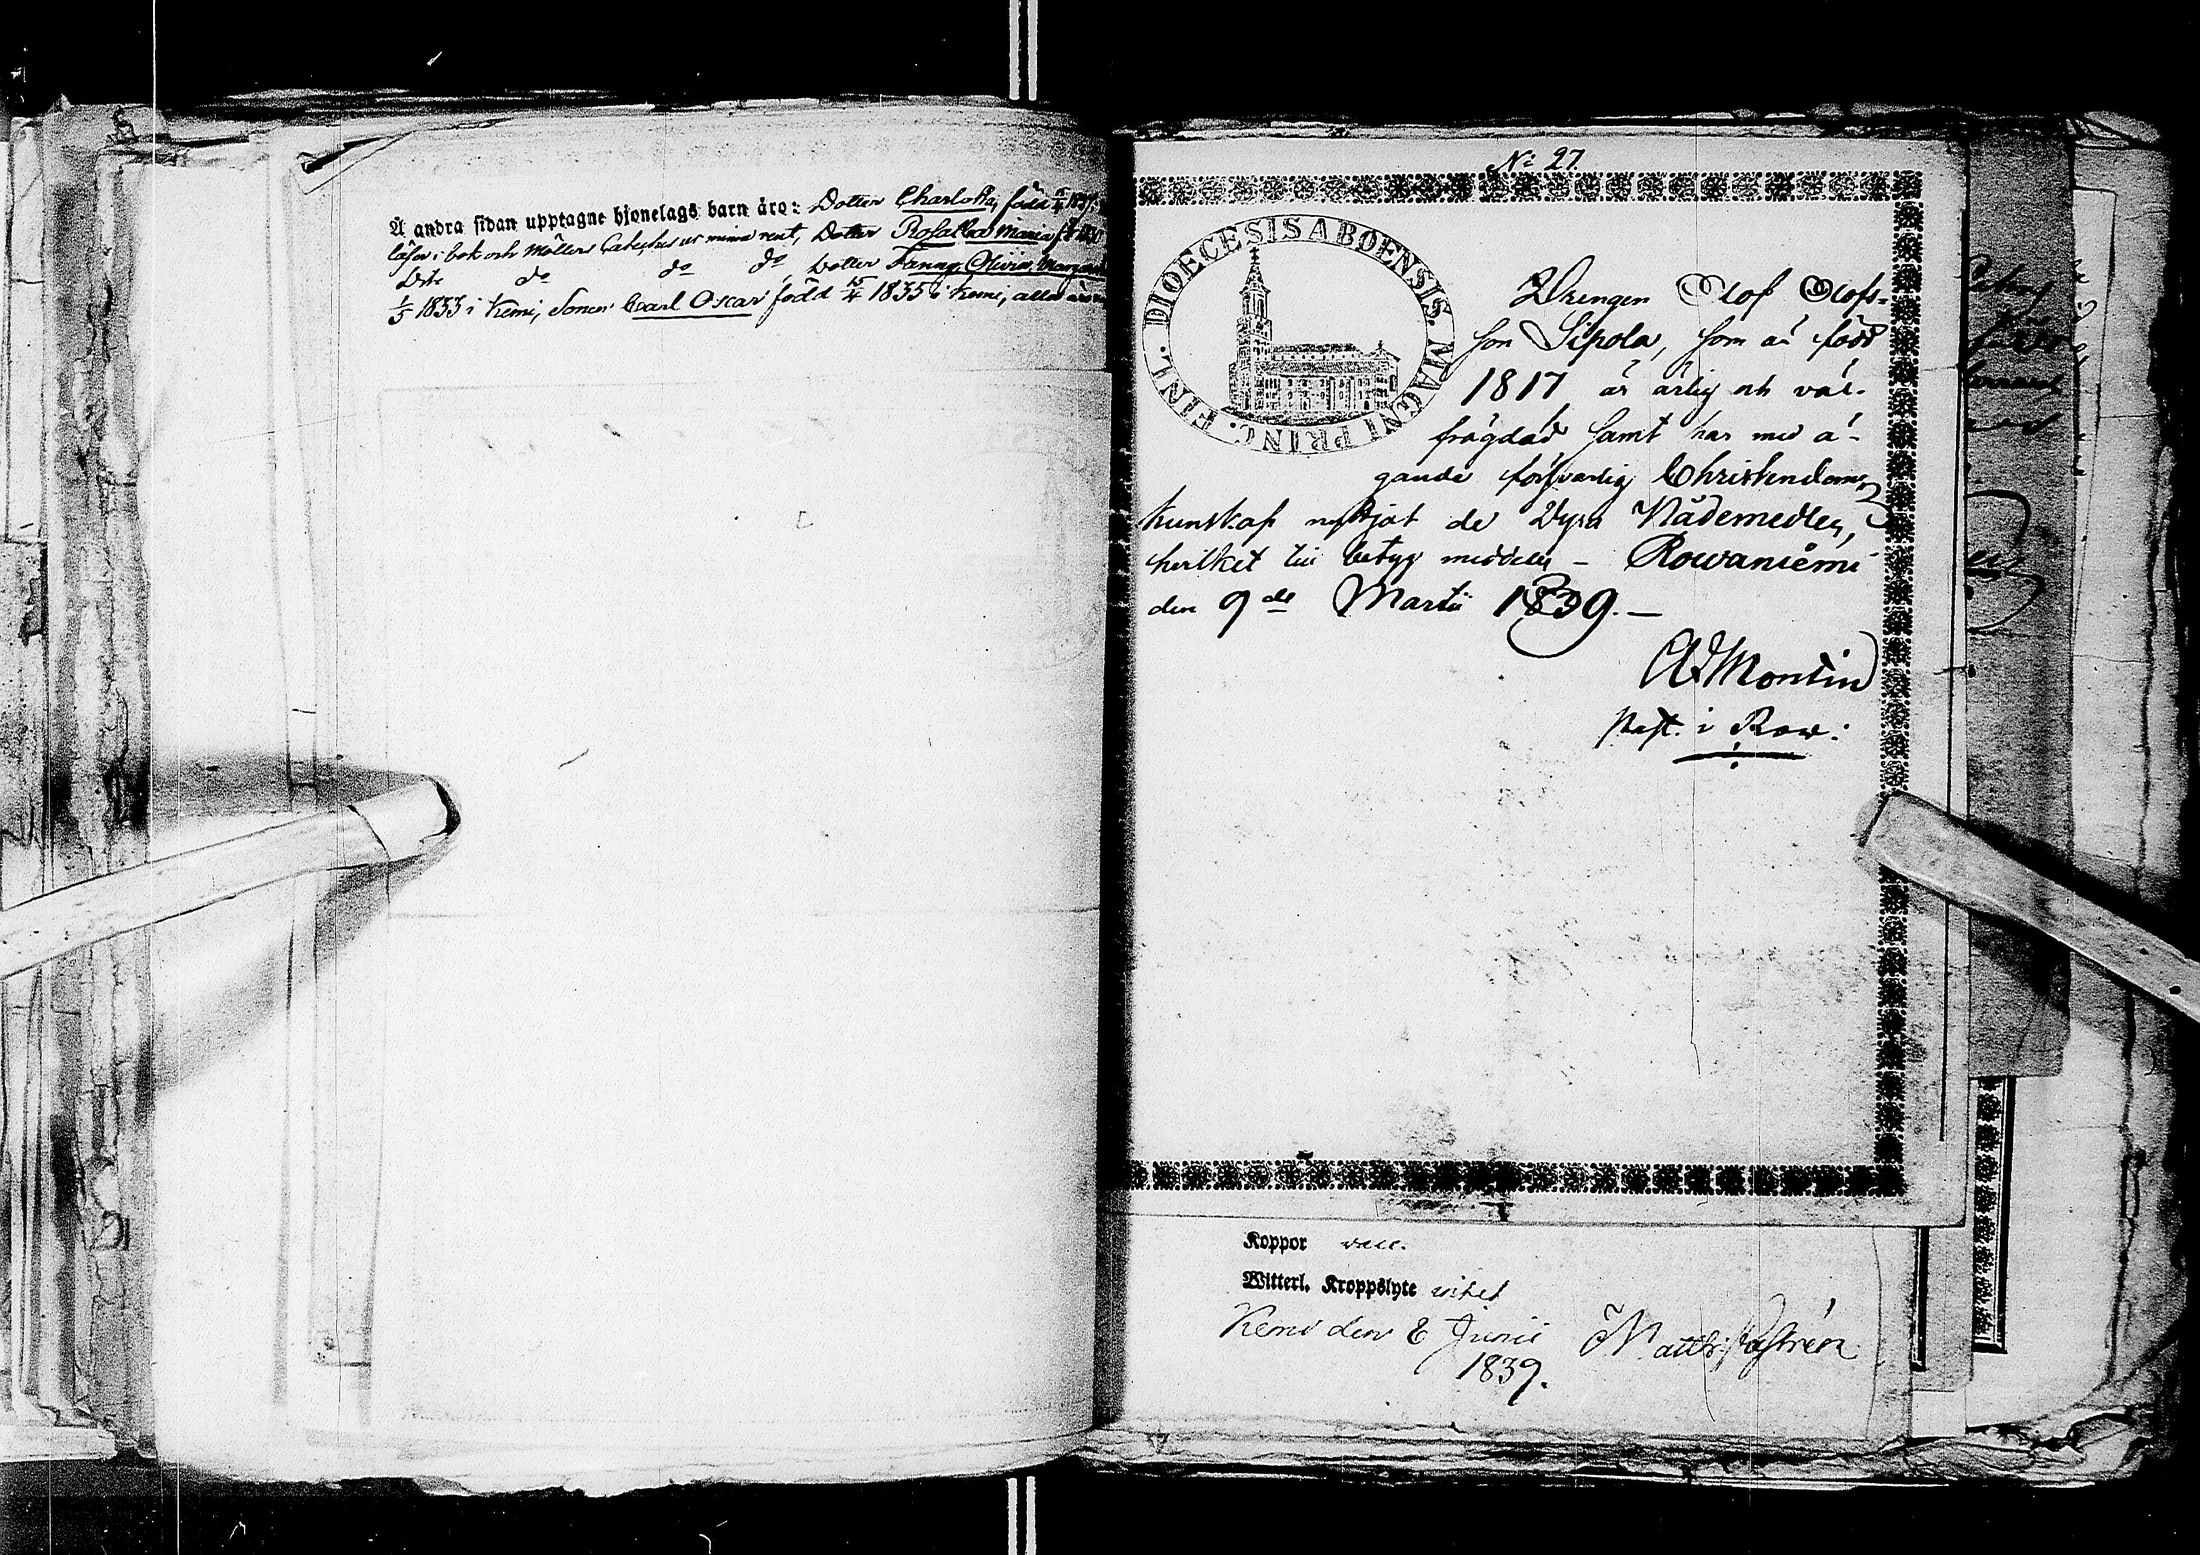 Å andra sidan upptagne hjonelags barn äro: Dotter Charlotta, född
läser i bok och Möllers minne rent, Dotter Rosalba Maria
do do do, Dotter Fanny Olivia
1/5 1833 i Kemi, Sonen Carl Oscar född 15/4 1835 i Kemi, alla
No 27.
DIOECESIS ABOENSIS. MAGNI PRINC. FINL.
Drengen Olof Olofs-
son Sipola, som är född
1817 är ärlig och väl-
frägdad samt har med ä-
gande försvarlig Christendoms
kunskap nyttjat de Dyra Nådemedlen,
hvilket till betyg meddelas – Rowaniemi
den 9de Martii 1839. –
Montin
Past. i Row:
Koppor
Witterl. Kroppslyte intet
Kemi den 8 Junii Matths Castrén
1839.